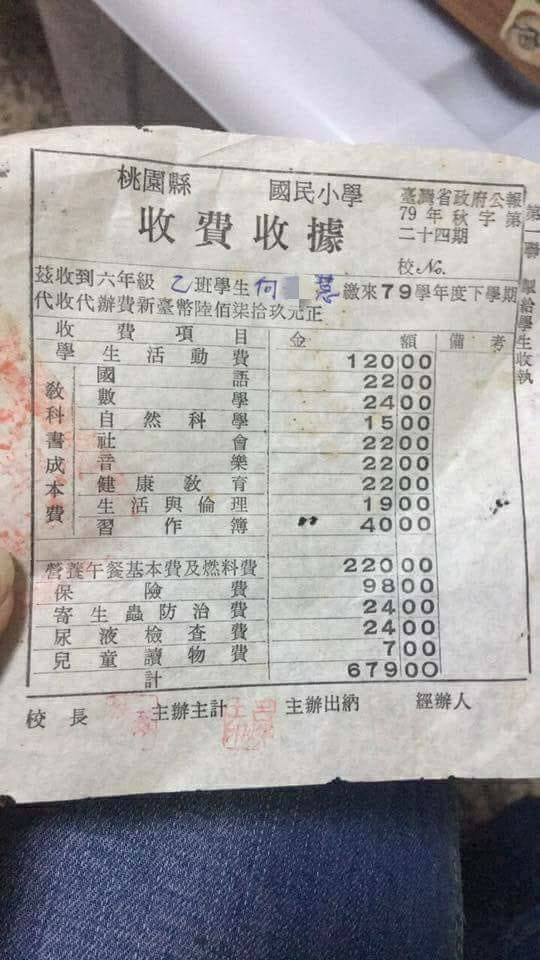 桃園縣 國民小學
臺灣省政府公報
79年秋字第
二十四期
收費收據
校No.
第一聯 報給學生收執
茲收到六年級 乙班學生何 慈 繳來79學年度下學期
代收代辦費新臺幣陸佰柒拾玖元正
收費項目 金額 備考
學生活動費 120 00
教科書成本費
國語 22 00
數學 24 00
自然科學 15 00
社會 22 00
音樂 22 00
健康教育 22 00
生活與倫理 19 00
習作簿 〃 40 00
營養午餐基本費及燃料費 220 00
保險費 98 00
寄生蟲防治費 24 00
尿液檢查費 24 00
兒童讀物費 7 00
計 679 00
校長 主辦主計 主辦出納 經辦人